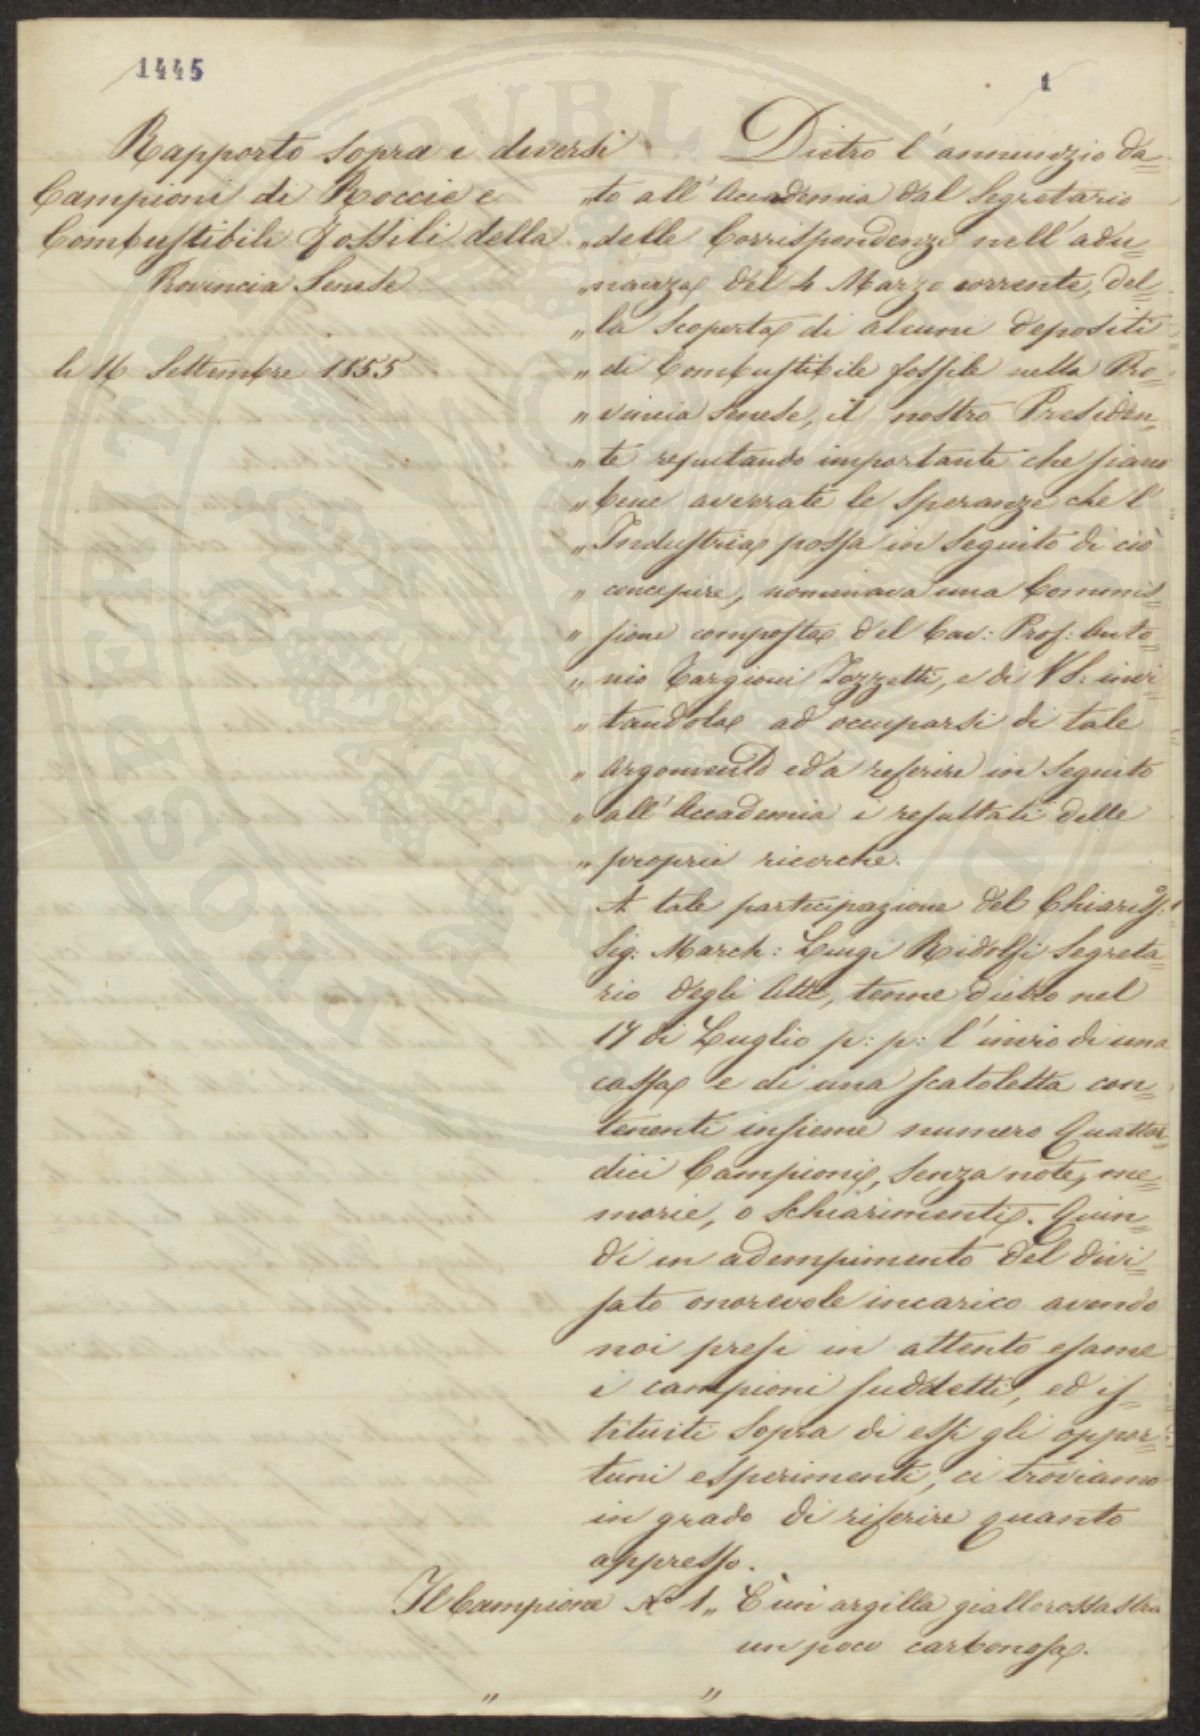 1445
1
Rapporto sopra i diversi
Campioni di Roccie e
Combustibili Fossili della
Provincia Senese
li 16 Settembre 1855
Dietro l'annunzio da=
„to all'Accademia dal Segretario
„delle Corrispondenze nell'adu=
„nanza del 4 Marzo corrente, del=
„la scoperta di alcuni depositi
„di Combustibile fossile nella Pro=
„vincia Senese, il nostro Presiden=
„te reputando importante che siano
„bene avverate le speranze che l'
„Industria possa in seguito di ciò
„concepire, nominava una Commis=
„sione composta del Cav: Prof: Anto=
„nio Targioni Tozzetti, e di V S. invi=
„tandola ad occuparsi di tale
„Argomento ed a referire in seguito
„all'Accademia i resultati delle
„proprie ricerche.
A tale partecipazione del Chiariss:º
Sig: March: Luigi Ridolfi Segreta=
rio degli Atti, tenne dietro nel
17 di Luglio p: p: l'invio di una
cassa e di una scatoletta con=
tenenti insieme numero Quattor=
dici Campioni, senza note, me=
morie, o schiarimenti. Quin=
di in adempimento del divi=
sato onorevole incarico avendo
noi presi in attento esame
i campioni suddetti, ed is=
tituiti sopra di essi gli oppor=
tuni esperimenti, ci troviamo
in grado di riferire quanto
appresso.
Il Campione Nº 1„ È un argilla giallorossastra
un poco carbonosa.
„ „
PROSPERITATI PUBLI